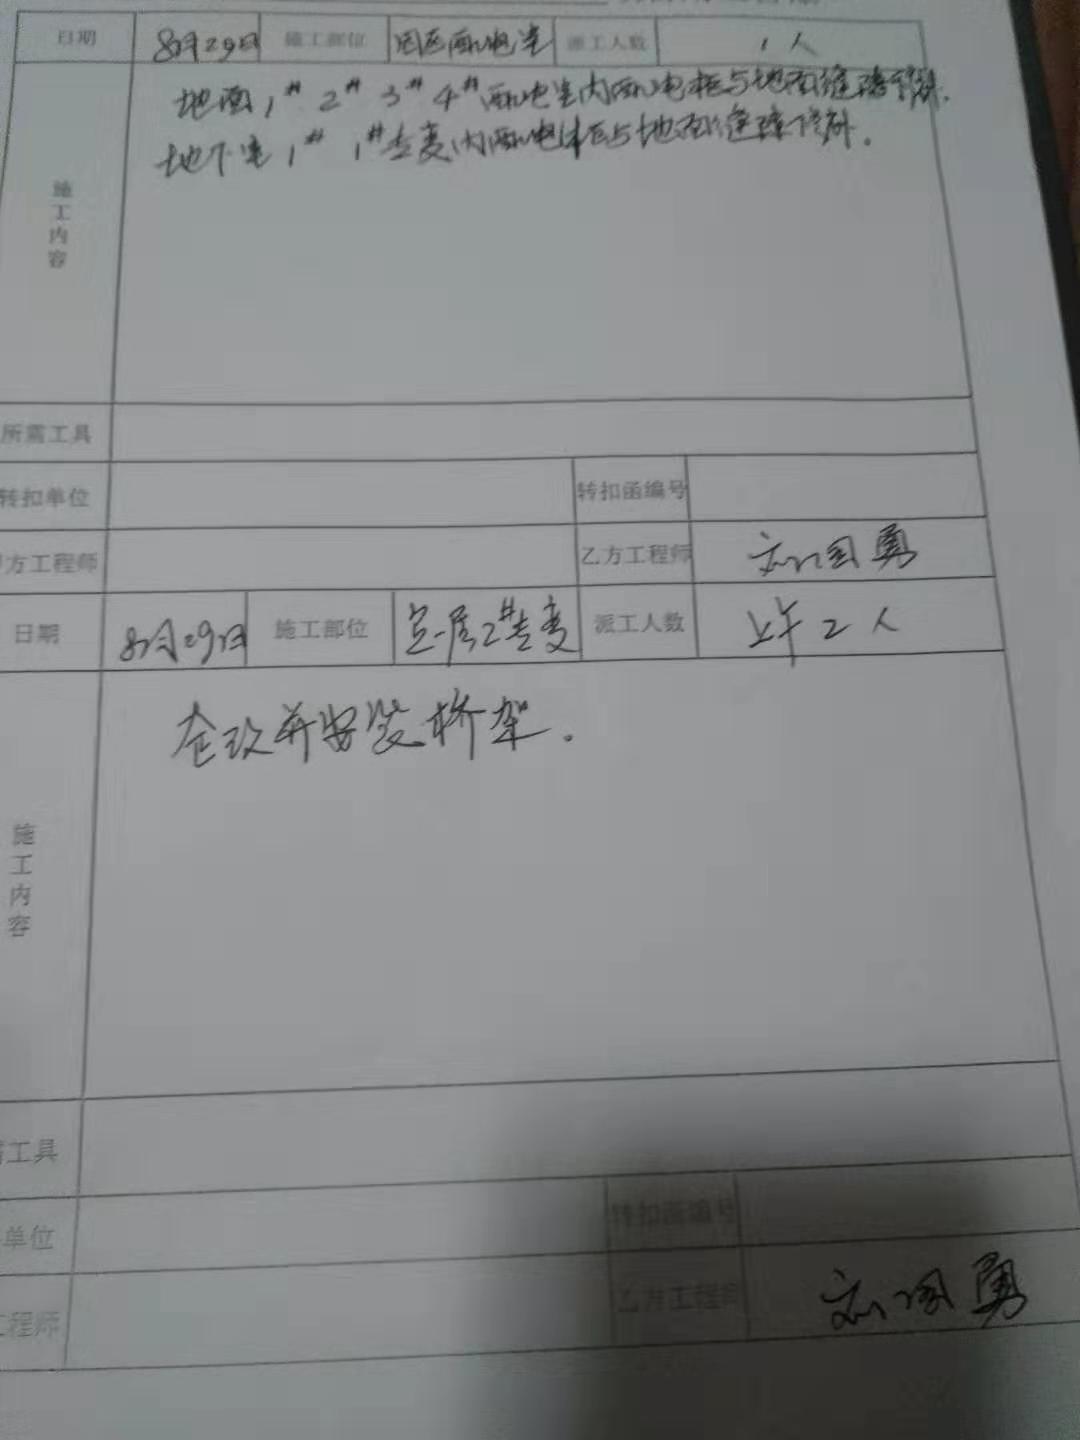 日期 8月29日 施工部位 园区配电室 派工人数 1人
施工内容
地面1# 2# 3# 4#配电室内配电柜与地面缝隙修补.
地下室1# 1#专变内配电柜与地面缝隙修补.
所需工具
转扣单位 转扣函编号
方工程师 乙方工程师 刘国勇
日期 8月29日 施工部位 负一层2#专变 派工人数 上午2人
施工内容
改并安装桥架.
工具
单位 转扣函编号
工程师 乙方工程师 刘国勇